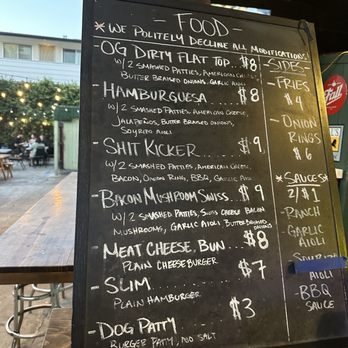 - FOOD -
* WE POLITELY DECLINE ALL MODIFICATIONS
- OG DIRTY FLAT TOP.. $8
W/ 2 SMASHED PATTIES, AMERICAN CHEESE,
BUTTER BRAISED ONIONS, GARLIC AIOLI
- HAMBURGUESA ... $8
W/ 2 SMASHED PATTIES, AMERICAN CHEESE,
JALAPEÑOS, BUTTER BRAISED ONIONS,
SOYRITO AIOLI
- SHIT KICKER ... $9
W/ 2 SMASHED PATTIES, AMERICAN CHEESE,
BACON, ONION RING, BBQ, GARLIC AIOLI
- BACON MUSHROOM SWISS.. $9
W/ 2 SMASHED PATTIES, SWISS CHEESE BACON
MUSHROOMS, GARLIC AIOLI BUTTER BRAISED ONIONS
- MEAT CHEESE, BUN ... $8
PLAIN CHEESEBURGER
- SLIM ... $7
PLAIN HAMBURGER
- DOG PATTY ... $3
BURGER PATTY, NO SALT
- SIDES -
- FRIES
$4
- ONION
RING'S
$6
* SAUCES *
2/$1
- RANCH
- GARLIC
AIOLI
AIOLI
- BBQ
SAUCE
Full